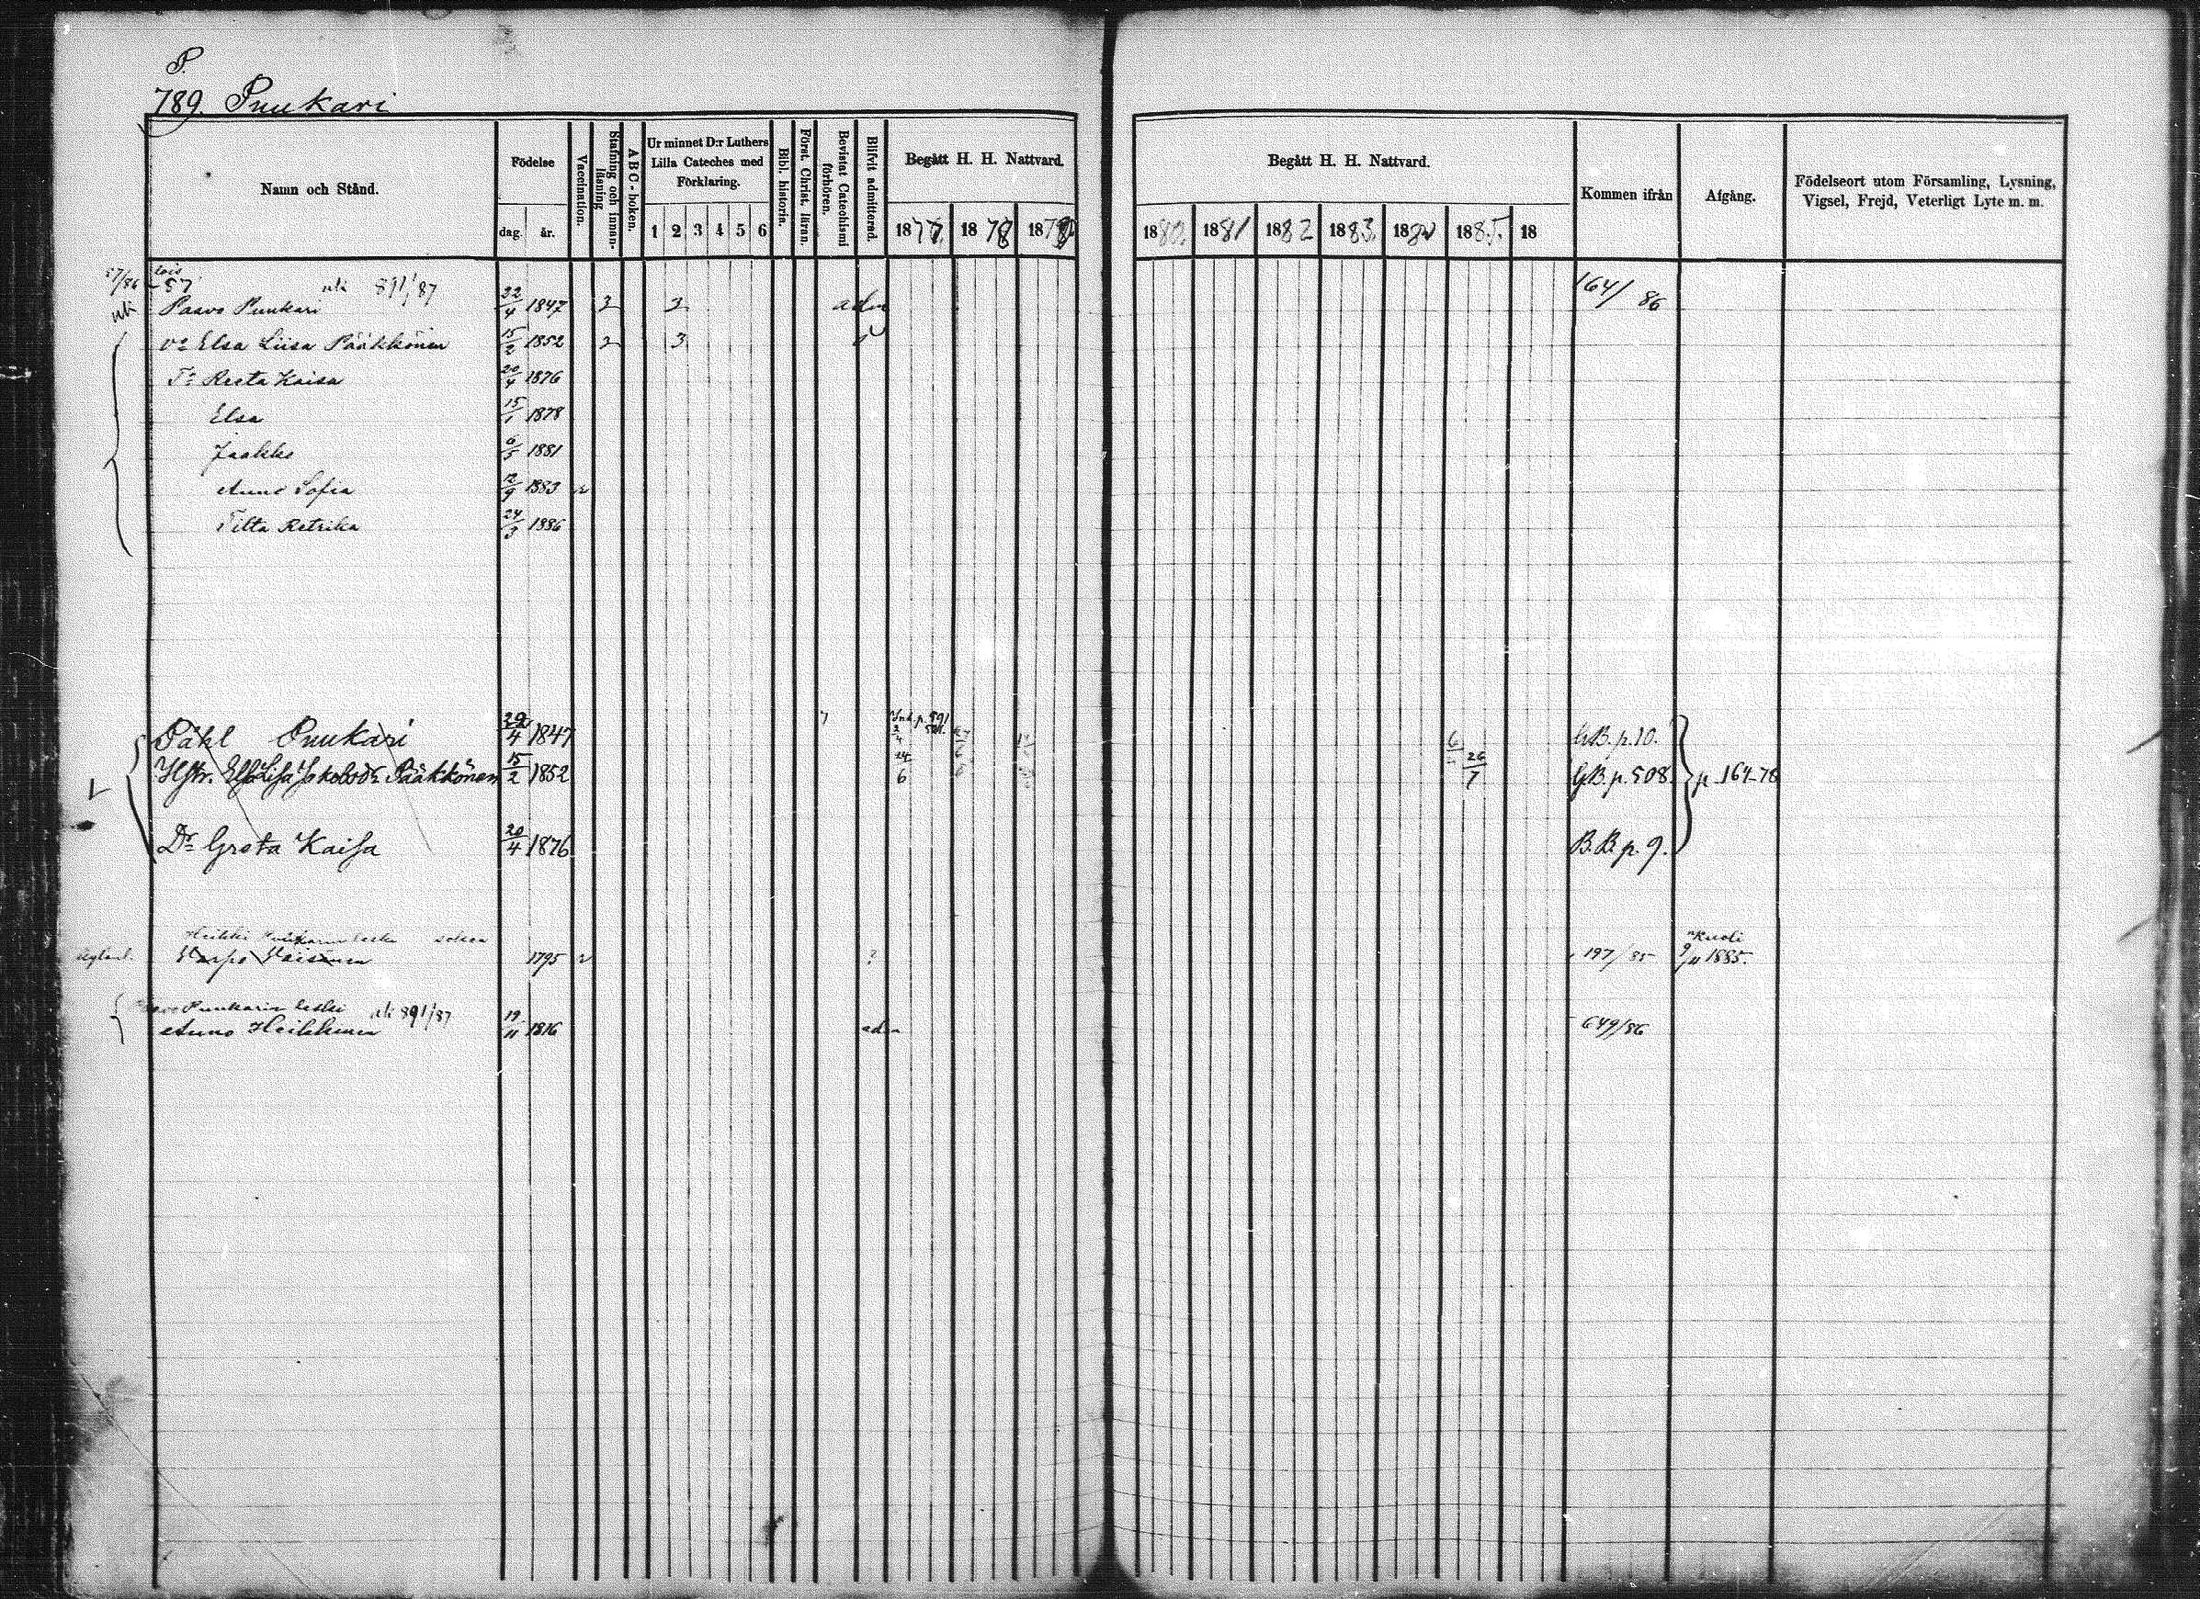 P.
789. Puukari
Namn och Stånd.
Födelse
dag. år.
Vaccination.
Stafning och innanläsning
ABC-boken.
Ur minnet D:r Luthers Lilla Cateches med Förklaring.
1 2 3 4 5 6
Bibl. historia.
Först. Christ. läran.
Bevistat Catechismi förhören.
Blifvit admitterad.
Begått H. H. Nattvard.
1877. 1878 1879
Begått H. H. Nattvard.
1880. 1881 1882 1883. 1884 1885. 18
Kommen ifrån
Afgång.
Födelseort utom Församling, Lysning, Vigsel, Frejd, Veterligt Lyte m. m.
lois
57 891/87
Paavo Puukari 22/4 1847 2 3 adm 164/86
vo Elsa Liisa Pääkkönen 15/2 1852 2 3
Tr Reeta Kaisa 20/4 1876
Elsa 15/1 1878
Jaakko 6/5 1881
Anna Sofia 12/9 1883 v
Tilta Retrika 24/3 1886
Påhl Puukari 22/4 1847 GB. p. 10.
Hstr. Elsa Lisa Jakobsdr Pääkkönen 15/2 1852 24/6 26/7 GB. p. 508. p. 164-78
Dr Greta Kaisa 20/4 1876 B.B. p. 9.
Heikki Puukarin leski sokea
1795 v ? 197/85 Kuoli 9/11 1885.
Puukarin leski 891/87
Anna Heikkinen 19/11 1816 adm 649/86